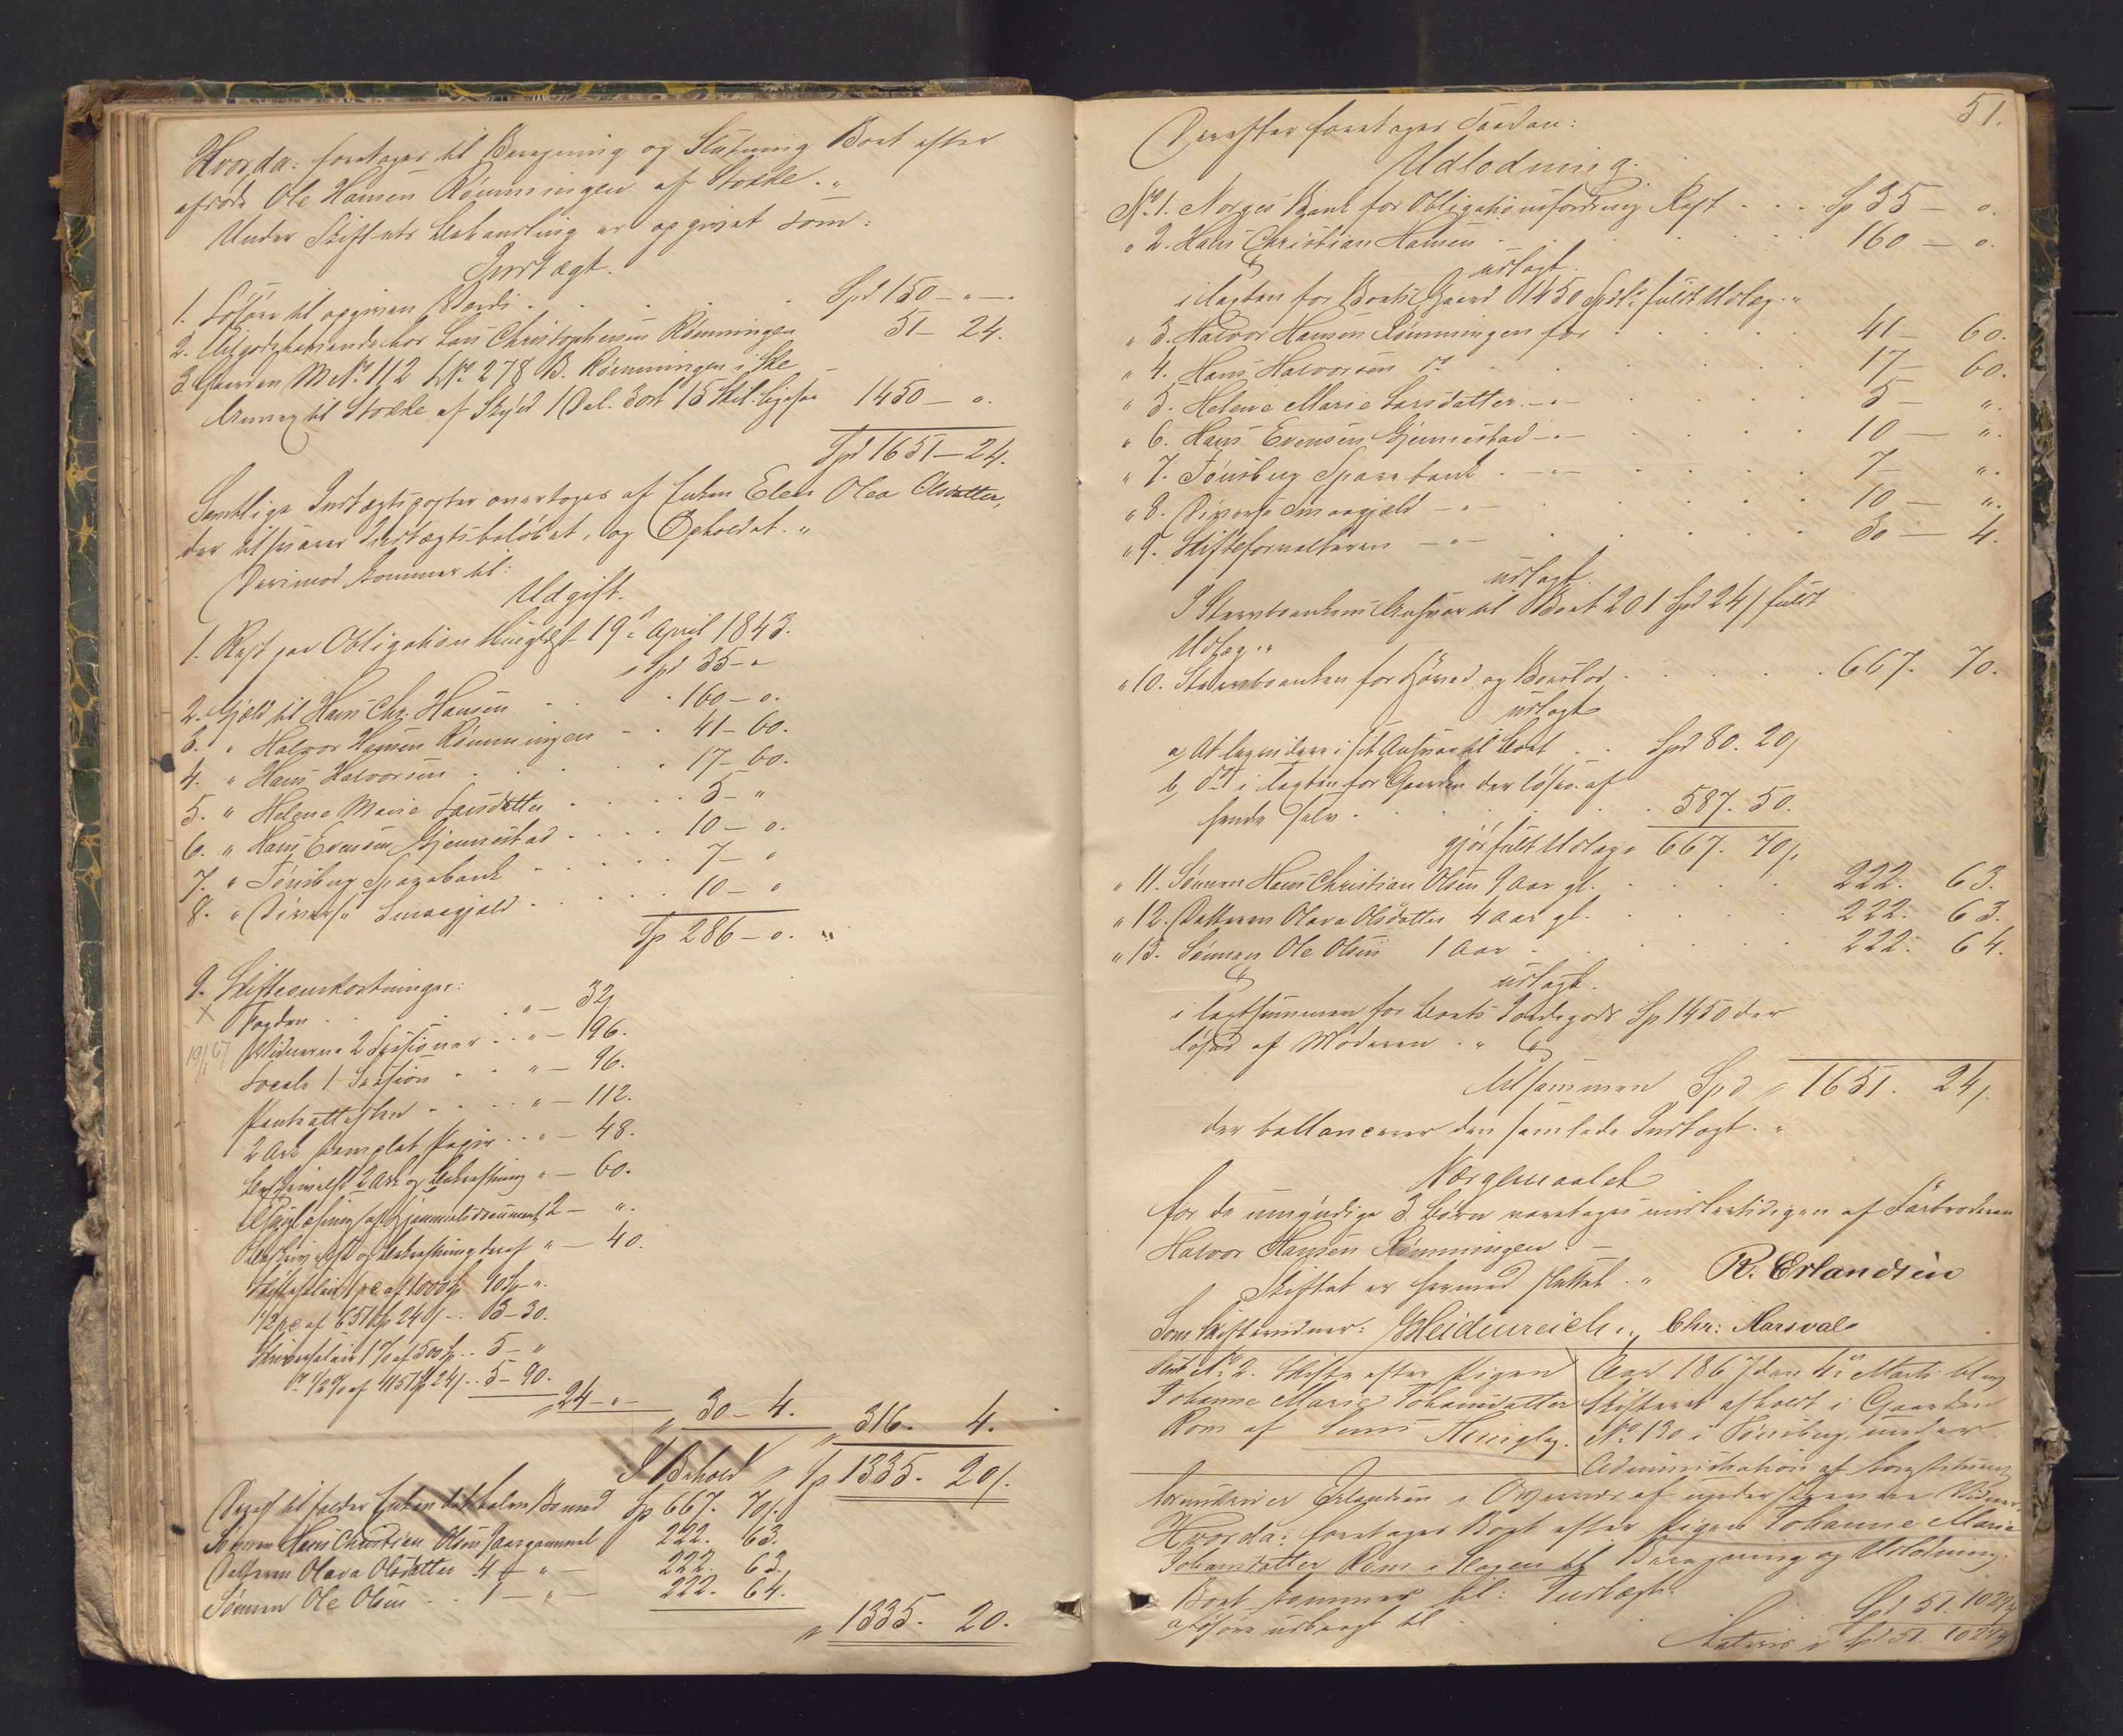 Hvorda: foretages til Beregning og Slutning Boet efter
afdøde Ole Hansen Rømmingen af Stokke. "
Under Skiftets Behandling er opgivet som:
Indtægt.
1. Løsøre til opgiven Værdi . . . Spd 150 - " -
2. Tilgodehavende hos Lars Christophersen Rømmingen 51 - 24.
3. Gaarden M No 112 L No 278 B. Rømmingen i Ske
Annex til Stokke af Skyld 1 Dal. 3 ort 15 Skil. 1450 - o.
Spd 1651 - 24.
Samtlige Indtægtsposter overtages af Enken Elen Olea Olsdatter,
der tilsvarer Indtægtsbeløbet, og Opholdet. "
Derimod kommer til:
Udgift.
1. Rest paa Obligation thinglæst 19de April 1843.
Spd 35 - "
2. Gjæld til Hans Chr. Hansen . . 160 - o.
3. " Halvor Hansen Rømmingen . . 41 - 60.
4. " Hans Halvorsen . . 17 - 60.
5. " Helene Marie Larsdatter . . 5 - "
6. " Hans Evensen Gjennestad . . 10 - o.
7. " Tønsberg Sparebank . . 7 - "
8. " Diverse Smaagjæld . . 10 - "
Sp 286 - o. "
9. Skifteomkostninger:
x Fogden . . " - 32
19/1 67 Vidnerne 2 Sessioner . . " - 196.
Locale 1 Session . . " - 96.
Panteattesten . . " - 112.
2 Ark stemplet Papir . . " - 48.
Beskrivelse 2 Ark og Bekræftning " - 60.
Thinglæsning af Hjemmelsdocument 2 - ".
Beskrivelse og Bekræftning deraf " - 40.
Skiftesalair 1 pc af 1000 Sp 10 Sp - ".
1/2 pc af 651 Sp 24 s . . 3 - 30.
Skriversalair 1 % af 500 Sp . . 5 - "
Do 1/2 % af 1151 Sp 24 s . . 5 - 90.
" 24 - " -
" 30 - 4. " 316. 4.
I Behold " Sp 1335. 20 s.
Deraf tilfalder Enken det halve Bo med Sp 667. 70 s.
Sønnen Hans Christian Olsen 9 aar gammel 222. 63.
Datteren Olava Olsdatter 4 - " - 222. 63.
Sønnen Ole Olsen . . 1 - " - 222. 64.
" 1335. 20.
51.
Derefter foretages saadan:
Udlodning.
No 1. Norges Bank for Obligationsfordring Rest . . . Sp 35 - o.
" 2. Hans Christian Hansen . . 160 - o.
udlagt.
i Taxten for Boets Gaard 1450 Spd: fuldt Udlæg. "
" 3. Halvor Hansen Rømmingen for . . 41 - 60.
" 4. Hans Halvorsen do . . 17 - 60.
" 5. Helene Marie Larsdatter - " - . . 5 - ".
" 6. Hans Evensen Gjennestad - " - . . 10 - ".
" 7. Tønsberg Sparebank - " - . . 7 - ".
" 8. Diverse Smaagjæld - " - . . 10 - ".
" 9. Skifteforvalteren - " - . . 30 - 4.
udlagt.
I Stervboenkens Ansvar til Boet 201 Spd 24 s fuldt
Udlæg. "
" 10. Stervboenken for Hoved og Boeslod . . 667. 70.
udlagt
a, At beregne i sit Ansvar til Boet . . Spd 80. 20 s
b, do i Taxten for Gaarden der løses af
hende selv . . 587. 50.
gjør fuldt Udlæg " 667. 70 s.
" 11. Sønnen Hans Christian Olsen 9 Aar gl. . . 222. 63.
" 12. Datteren Olava Olsdatter 4 Aar gl. . . 222. 63.
" 13. Sønnen Ole Olsen 1 Aar . . 222. 64.
udlagt.
i Taxtsummen for Boets Jordegods Sp 1450 der
løses af Moderen. "
Tilsammen Spd " 1651. 24 s.
der ballancerer den samlede Indtægt. "
Værgemaalet
for de umyndige 3 Børn varetages midlertidigen af Farbroderen
Halvor Hansen Rømmingen. -
Skiftet er hermed sluttet. " R. Erlandsen
Som Skiftevidner: Heidenreich. Chr: Aarsvale
No 2. Skifte efter Pigen
Johanne Marie Johansdatter
Rom af Sems Thinglag.
Aar 1867 den 4de Marts blev
Skifteret afholdt i Gaarden
No 130 i Tønsberg under
Administration af Constitueret
Sorenskriver Erlandsen i Overvær af undertegnede Vidner.
Hvorda: foretages Boet efter Pigen Johanne Marie
Johansdatter Rom i Slagen til Beregning og Udlodning.
Boet kommer til: Indtægt.
a, Løsøre udbragt til . . Spd 51. 102 s
Lateris " Spd 51. 102 s